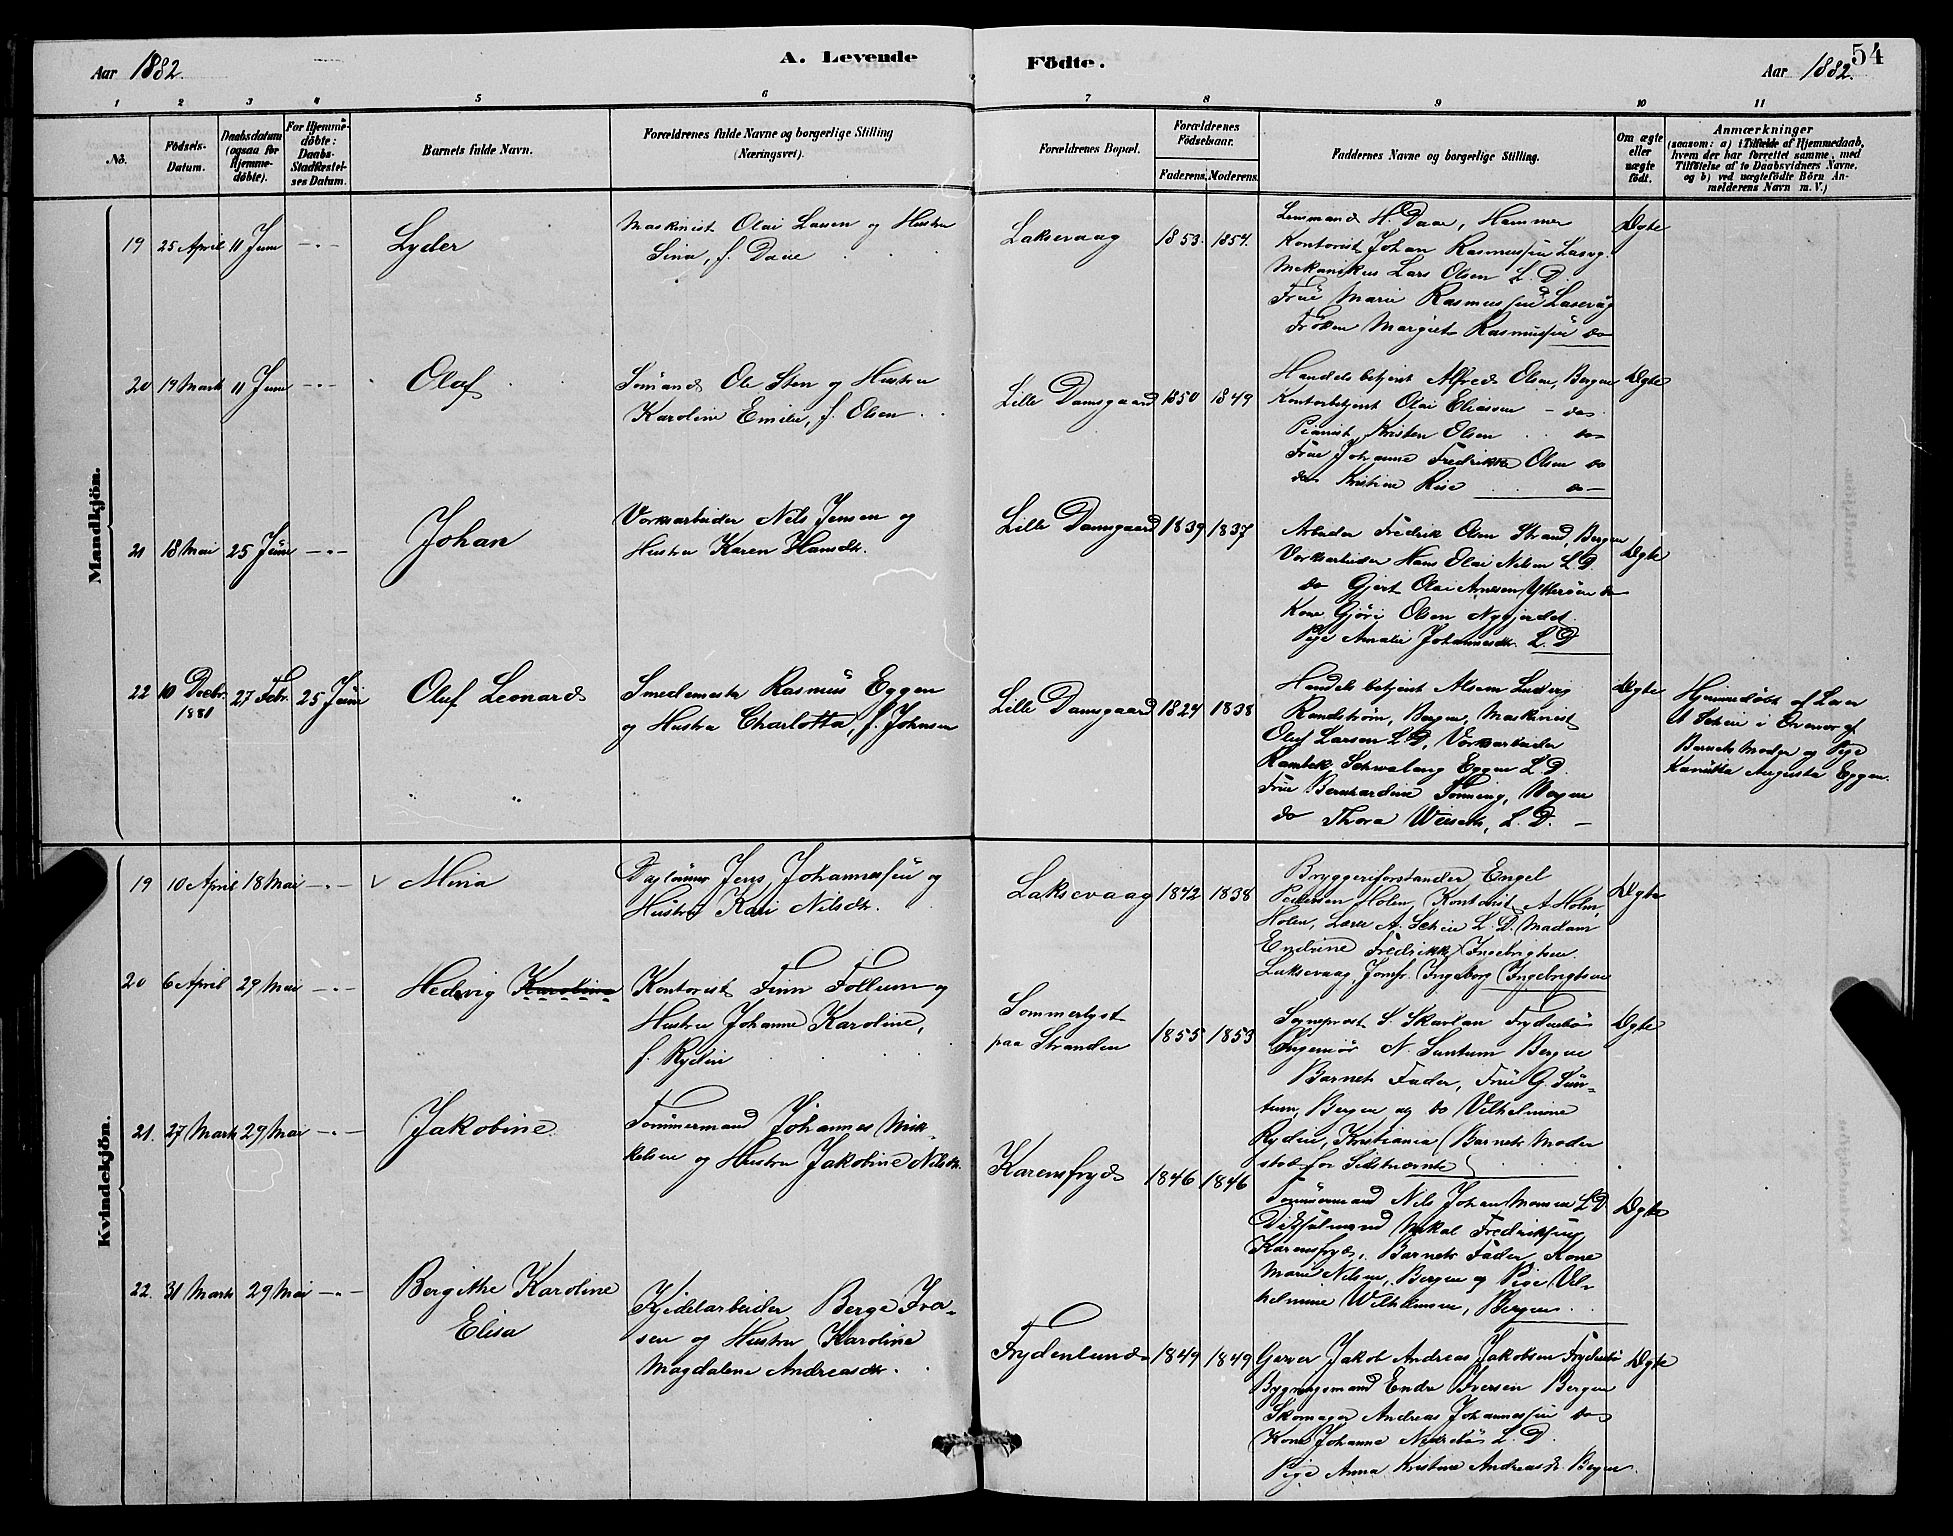 Aar 1882.
A. Levende
Födte.
Aar 1882.
54
1 2 3 4 5 6 7 8 9 10 11
No.
Födsels-
Datum.
Daabsdatum
(ogsaa for
Hjemme-
döbte).
For Hjemme-
döbte:
Daabs-
Stadfæstel-
ses Datum.
Barnets fulde Navn.
Forældrenes fulde Navne og borgerlige Stilling
(Næringsvei).
Forældrenes Bopæl.
Forældrenes
Födselsaar.
Faderens. Moderens.
Faddernes Navne og borgerlige Stilling.
Om ægte
eller
uægte
födt.
Anmærkninger
(saasom: a) i Tilfælde af Hjemmedaab,
hvem der har forrettet samme, med
Tilföielse af to Daabsvidners Navne.
og b) ved uægtefödte Börn An-
melderens Navn m.V.)
Mandkjön.
19 25 April 11 Juni - - -
Lyder
Maskinist Olai Lassen og Hustru
Sina, f. Daae
Laksevaag
1853. 1854.
Lensmand H. Daae, Hammer
Kontorist Johan Rasmussen
Mekanikus Lars Olsen L. D.
Frue Marie Rasmussen
Frøken Margit Rasmussen do
Ægte
20 19 Marts 11 Juni - - -
Olaf
Sømand Ole Sten og Hustru
Karoline Emilie, f. Olsen
Lille Damsgaard 1850 1849
Handelsbetjent Alfred Olsen, Bergen
Kontorbetjent Olai Eliassen - do
Pianist Kristen Olsen do
Frue Johanne Fredrikke Olsen do
do Kristine Rise do
Ægte
21 18 Mai 25 Juni - - -
Johan
Værksarbeider Nils Jensen og
Hustru Karen Hansdtr.
Lille Damsgaard 1839 1837
Arbeider Fredrik Olsen Strand, Bergen
Værksarbeider Hans Olai Nilsen L. D.
do Gjert Olai Arnesen Ytterøen do
Kone Gjøri Olsen Nygjerdet
Pige Amalie Johannesdtr. L. D
Ægte
22 10 Decbr. 1881 27 Febr. 25 Juni
Oluf Leonard
Smedemester Rasmus Eggen
og Hustru Charlotta, f. Johnsen
Lille Damsgaard 1824 1838
Handelsbetjent Ludvig
Randstrøm, Bergen, Maskinist
Oluf Larsen L. D, Værksarbeider
Schwalang Eggen L. D.
Frue Bernhardine Tønning, Bergen
do Thora L. D. -
Ægte
Hjemmedøbt af Lærer
A Scheie i Nærvær af
Barnets Moder og Pige
Augusta Eggen.
Kvindekjön.
19 10 April 18 Mai - - -
Mina
Daglønner Jens Johannessen og
Hustru Kari Nilsdtr.
Laksevaag 1842 1838
Bryggeriforstander Engel
Pedersen Holen, Kontorist A Holm
Holen, Lærer A. Scheie L. D. Madam
Endrine Fredrikke Ingebrigtsen
Laksevaag, Jomfr. Ingeborg Ingebrigtsen
Ægte
20 6 April 29 Mai - - -
Hedevig Karoline
Kontorist Finn Follum og
Hustru Johanne Karoline,
f. Rydin
Sommerlyst
paa Stranden
1855 1853
Sogneprest S. Skavlan Frydenbø
Ingeniør N. Suntum Bergen
Barnets Fader, Frue G. Sun-
tum, Bergen og do Vilhelmine
Rydin, Kristiania (Barnets Moder
stod for Sidstnævnte)
Ægte
21. 27 Marts 29 Mai - - -
Jakobine
Tømmermand Johannes Mik-
kelsen og Hustru Jakobine Nilsdtr.
Karensfryd 1846 1846
Tømmermand Nils Johan Monsen L D
Mikal Fredriksen
Karensfryd, Barnets Fader, Kone
Marie Nilsen, Bergen og Pige Vil-
helmine Wilhelmsen, Bergen
Ægte
22. 31 Marts 29 Mai - - -
Bergithe Karoline
Elisa
Kjedelarbeider Berge Iver-
sen og Hustru Karoline
Magdalene Andreasdtr.
Frydenlund 1849 1849
Garver Jakob Andreas Jakobsen Frydenbø
Bygningsmand Endre Iversen Bergen
Skomager Andreas Johannessen do
Kone Johanne Nedrebø L. D.
Pige Anna Kristine Andreasdtr. Bergen
Ægte